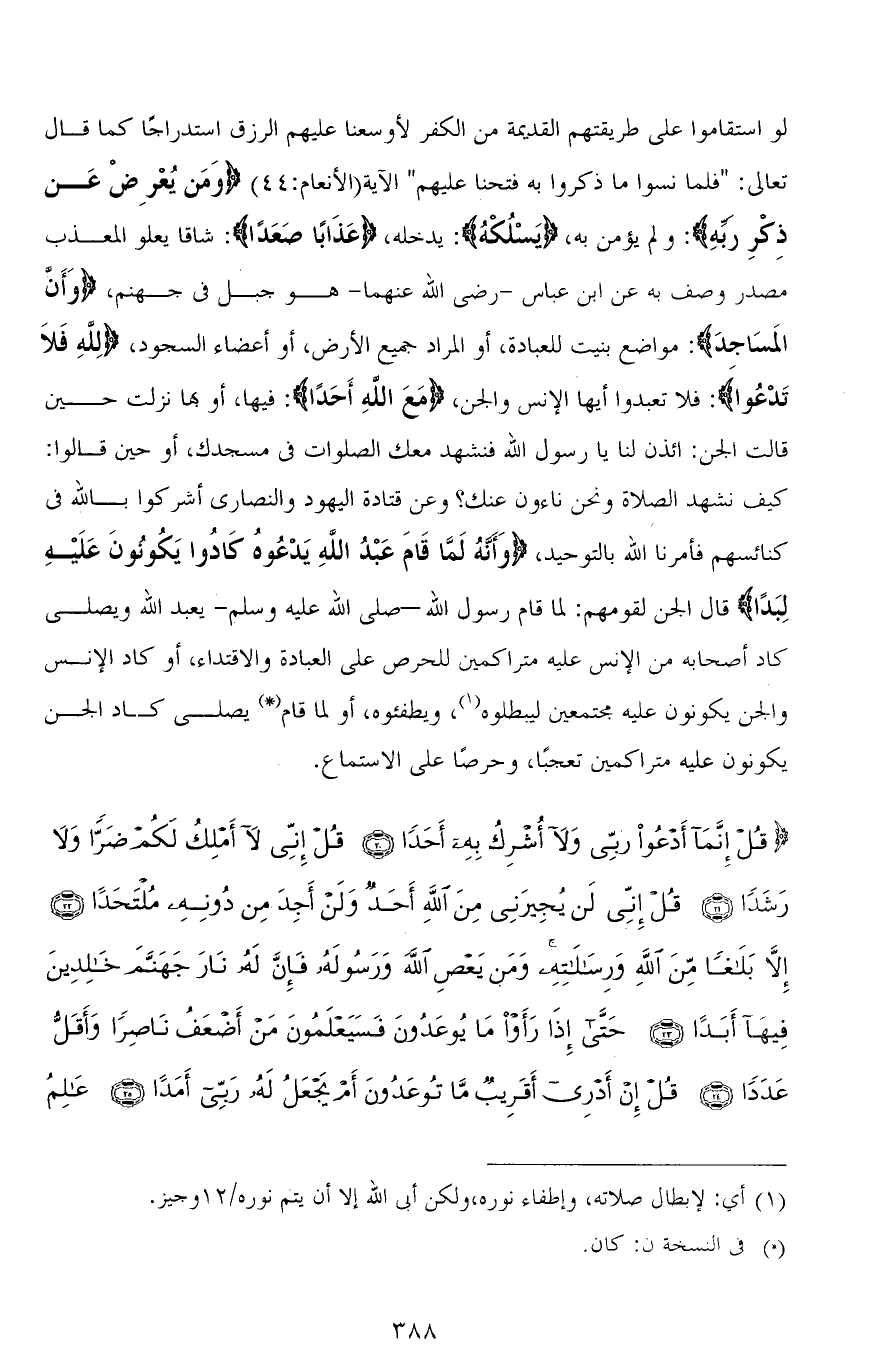 لو استقاموا على طريقتهم القديمة من الكفر لأوسعنا عليهم الرزق استدراجًا كما قـال
تعالى: "فلما نسوا ما ذكروا به فتحنا عليهم" الآية(الأنعام:٤٤) ﴿وَمَن يُعْرِضْ عَـــن
ذِكْرِ رَبِّهِ﴾: و لم يؤمن به، ﴿يَسْلُكْهُ﴾: يدخله، ﴿عَذَابًا صَعَدًا﴾: شاقا يعلو المعـــذب
مصدر وصف به عن ابن عباس -رضى الله عنهما- هـــو جبـــل فى جـــهنم، ﴿وَأَنَّ
المَسَاجِدَ﴾: مواضع بنيت للعبادة، أو المراد جميع الأرض، أو أعضاء السجود، ﴿لِلَّهِ فَلاَ
تَدْعُوا﴾: فلا تعبدوا أيها الإنس والجن، ﴿مَعَ اللَّهِ أَحَدًا﴾: فيها، أو بها نزلت حـــين
قالت الجن: ائذن لنا يا رسول الله فنشهد معك الصلوات فى مسجدك، أو حين قـالوا:
كيف نشهد الصلاة ونحن ناءون عنك؟ وعن قتادة اليهود والنصارى أشركوا بـــالله فى
كنائسهم فأمرنا الله بالتوحيد، ﴿وَأَنَّهُ لَمَّا قَامَ عَبْدُ اللَّهِ يَدْعُوهُ كَادُوا يَكُونُونَ عَلَيْـــهِ
لِبَدًا﴾ قال الجن لقومهم: لما قام رسول الله –صلى الله عليه وسلم- يعبد الله ويصلـــى
كاد أصحابه من الإنس عليه متراكمين للحرص على العبادة والاقتداء، أو كاد الإنـــس
والجن يكونون عليه مجتمعين ليبطلوه(١)، ويطفئوه، أو لما قام(*) يصلـــى كـــاد الجـــن
يكونون عليه متراكمين تعجبًا، وحرصًا على الاستماع.
﴿ قُلْ إِنَّمَآ أَدْعُواْ رَبِّى وَلَآ أُشْرِكُ بِهِۦٓ أَحَدًا ۝٢٠ قُلْ إِنِّى لَآ أَمْلِكُ لَكُمْ ضَرًّا وَلَا
رَشَدًا ۝٢١ قُلْ إِنِّى لَن يُجِيرَنِى مِنَ ٱللَّهِ أَحَدٌ وَلَنْ أَجِدَ مِن دُونِهِۦ مُلْتَحَدًا ۝٢٢
إِلَّا بَلَٰغًا مِّنَ ٱللَّهِ وَرِسَٰلَٰتِهِۦۚ وَمَن يَعْصِ ٱللَّهَ وَرَسُولَهُۥ فَإِنَّ لَهُۥ نَارَ جَهَنَّمَ خَٰلِدِينَ
فِيهَآ أَبَدًا ۝٢٣ حَتَّىٰٓ إِذَا رَأَوْاْ مَا يُوعَدُونَ فَسَيَعْلَمُونَ مَنْ أَضْعَفُ نَاصِرًا وَأَقَلُّ
عَدَدًا ۝٢٤ قُلْ إِنْ أَدْرِىٓ أَقَرِيبٌ مَّا تُوعَدُونَ أَمْ يَجْعَلُ لَهُۥ رَبِّىٓ أَمَدًا ۝٢٥ عَٰلِمُ
(١) أي: لإبطال صلاته، وإطفاء نوره،ولكن أبى الله إلا أن يتم نوره/١٢وجيز.
(*) فى النسخة ن: كان.
٣٨٨